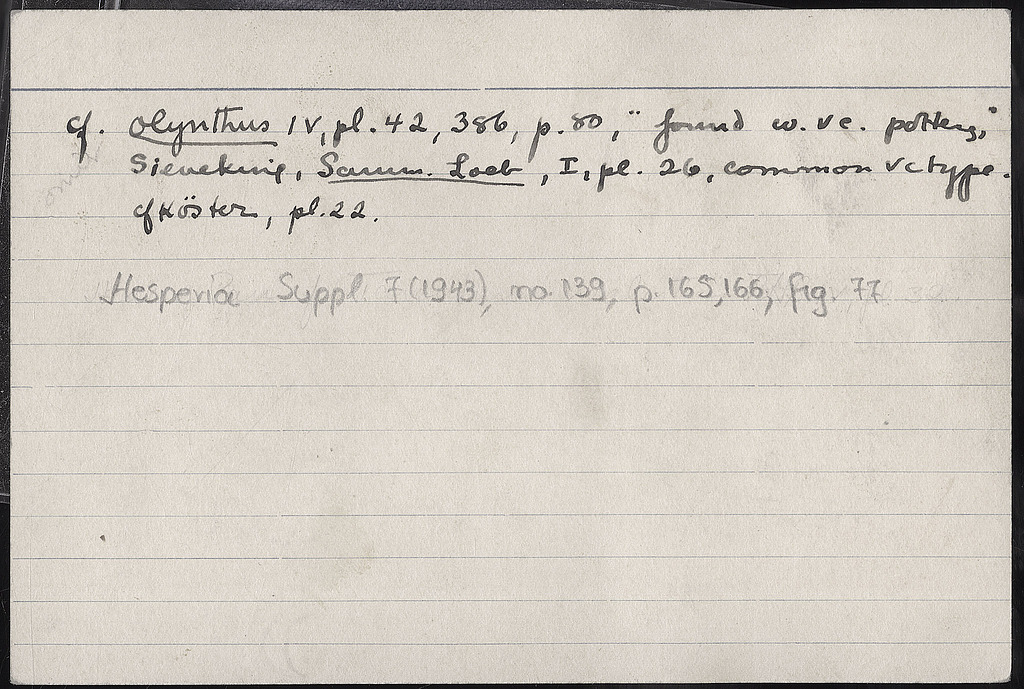 cf. Olynthus IV, pl. 42, 386, p. 80, "found w. Vc. pottery,"
Sieveking, Samm. Loeb, I, pl. 26, common Vc type.
cf Köster, pl. 22.
Hesperia Suppl 7 (1943), no. 139, p. 165, 166, fig. 77